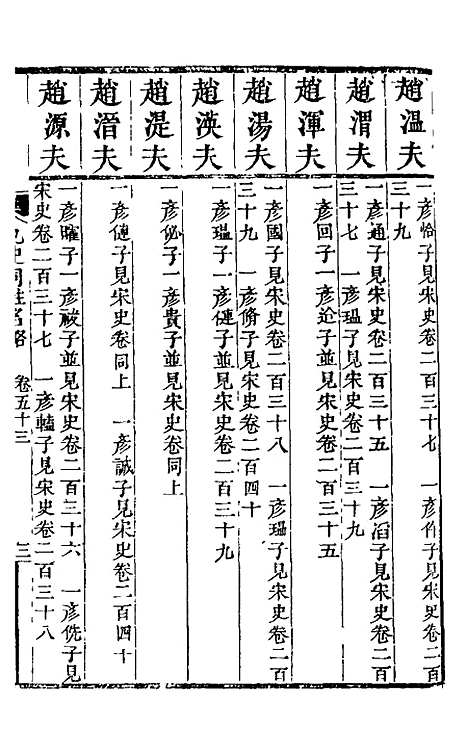 趙溫夫
一彥恰子見宋史卷二百三十七 一彥作子見宋史卷二百
三十九
趙渭夫
一彥通子見宋史卷二百三十五 一彥滔子見宋史卷二百
三十七 一彥琩子見宋史卷二百三十九
趙渾夫
一彥回子一彥㳂子並見宋史卷二百三十五
趙湯夫
一彥國子見宋史卷二百三十八 一彥琩子見宋史卷二百
三十九 一彥脩子見宋史卷二百四十
趙渶夫
一彥琩子一彥僆子並見宋史卷二百三十九
趙湜夫
一彥佖子一彥貴子並見宋史卷同上
趙湣夫
一彥僆子見宋史卷同上 一彥誠子見宋史卷二百四十
趙源夫
一彥曜子一彥祓子並見宋史卷二百三十六 一彥侁子見
宋史卷二百三十七 一彥𨍏子見宋史卷二百三十八
九史同姓名略 卷五十三 三